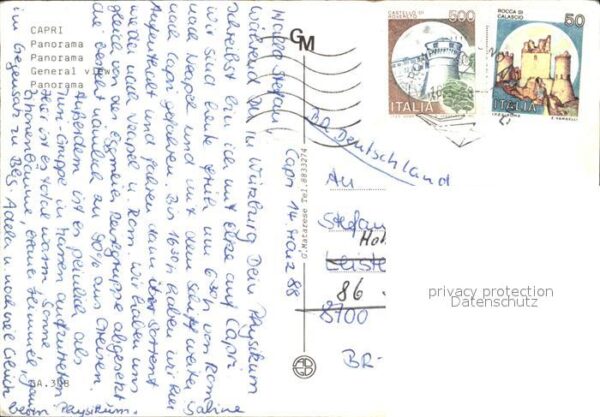 CAPRI
Panorama
Panorama
General view
Panorama
GM
CASTELLO DI ROVERETO
500
ITALIA
ROCCA DI CALASCIO
50
ITALIA
BR Deutschland
Capri 14. März 88
Hallo Stefan!
Während Du in Würzburg Dein Physikum
schreibst bin ich mit auf Capri.
Wir sind heute früh um 6.30h von Rom
nach Neapel und mit dem Schiff weiter
nach Capri gefahren. Bis 16.30h haben wir hier
Aufenthalt und fahren dann über Sorrent
wieder nach Neapel u. Rom. Wir haben uns
gleich von der Reisegruppe abgesetzt
die besteht nämlich zu 90% aus Greisen.
Außerdem ist es peinlich als
-Gruppe in aufzutreten
Hier ist es total warm, Sonne,
Zitronenbäume, blauer Himmel, ganz
im Gegensatz zu BRD. Adela u. noch viel Glück
beim Physikum.
Sabine
G.Matarese Tel.8833274
An
Stefan
86
8700
BR-
privacy protection
Datenschutz